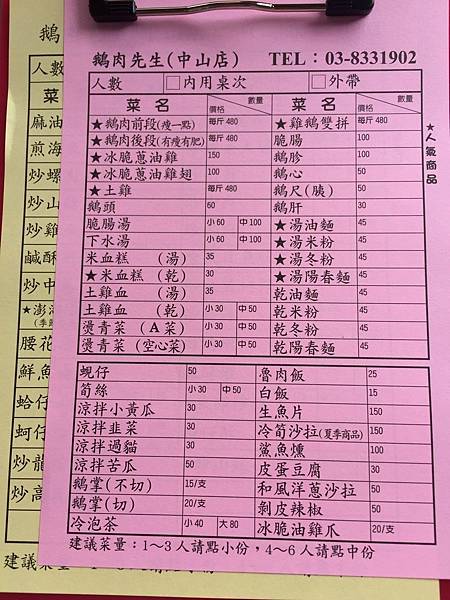 鵝肉先生(中山店) TEL：03-8331902
人數 □內用桌次 □外帶
菜名 價格 數量 菜名 價格 數量
★鵝肉前段(瘦一點) 每斤 480 ★雞鵝雙拼 每斤 480
★鵝肉後段(有瘦有肥) 每斤 480 脆腸 100
★冰脆蔥油雞 150 鵝胗 100
★冰脆蔥油雞翅 100 鵝心 50
★土雞 每斤 480 鵝尺(胰) 50
鵝頭 60 鵝肝 30
脆腸湯 小 60 中 100 ★湯油麵 45
下水湯 小 60 中 100 ★湯米粉 45
米血糕 (湯) 35 ★湯冬粉 45
★米血糕 (乾) 30 ★湯陽春麵 45
土雞血 (湯) 35 乾油麵 45
土雞血 (乾) 小 30 中 50 乾米粉 45
燙青菜 (A菜) 小 30 中 50 乾冬粉 45
燙青菜 (空心菜) 小 30 中 50 乾陽春麵 45
★人氣商品
蜆仔 50 魯肉飯 25
筍絲 小 30 中 50 白飯 15
涼拌小黃瓜 30 生魚片 150
涼拌韭菜 30 冷筍沙拉(夏季商品) 150
涼拌過貓 30 鯊魚燻 100
涼拌苦瓜 50 皮蛋豆腐 30
鵝掌(不切) 15/支 和風洋蔥沙拉 50
鵝掌(切) 20/支 剝皮辣椒 50
冷泡茶 小 40 大 80 冰脆油雞爪 20/支
建議菜量：1～3人請點小份，4～6人請點中份
鵝
人數
菜
麻油
煎海
炒螺
炒山
炒雞
鹹酥
炒中
★澎湖
(季節
腰花
鮮魚
蛤仔
蚵仔
炒龍
炒高
建議菜量